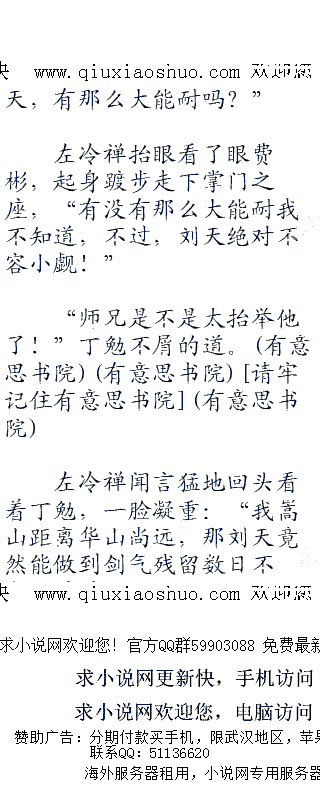 www.qiuxiaoshuo.com 欢迎您
天，有那么大能耐吗？”
左冷禅抬眼看了眼费
彬，起身踱步走下掌门之
座，“有没有那么大能耐我
不知道，不过，刘天绝对不
容小觑！”
“师兄是不是太抬举他
了！”丁勉不屑的道。(有意
思书院) (有意思书院) [请牢
记住有意思书院] (有意思书
院)
左冷禅闻言猛地回头看
着丁勉，一脸凝重：“我嵩
山距离华山尚远，那刘天竟
然能做到剑气残留数日不
www.qiuxiaoshuo.com 欢迎您
求小说网欢迎您！官方QQ群59903088 免费最新
求小说网更新快，手机访问
求小说网欢迎您，电脑访问
赞助广告：分期付款买手机，限武汉地区，苹果
联系QQ：51136620
海外服务器租用，小说网专用服务器